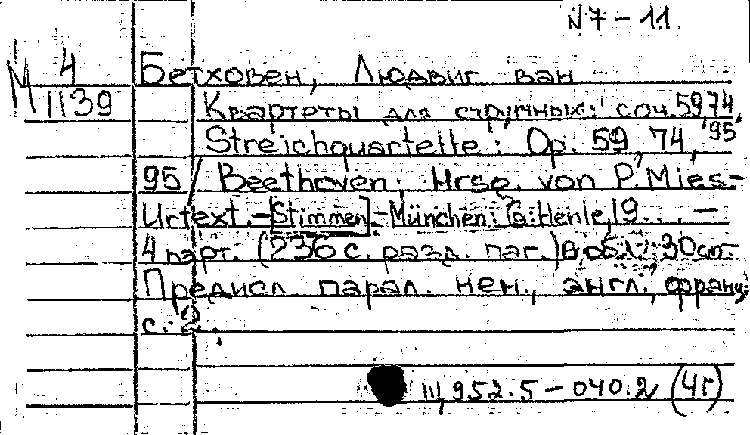 N7-11.
М 4
1139
Бетховен, Людвиг ван
Квартеты для струнных: соч. 59, 74, 95
Streichquartette: Op. 59, 74,
95 / Beethoven; Hrsg. von P. Mies.-
Urtext.-[Stimmen].-München: G. Henle, 19... -
4 парт. (236 с. разд. паг.) в обл.; 30 см.-
Предисл. парал. нем., англ., франц.
с. 2.
III, 952.5-040.2 (4г)